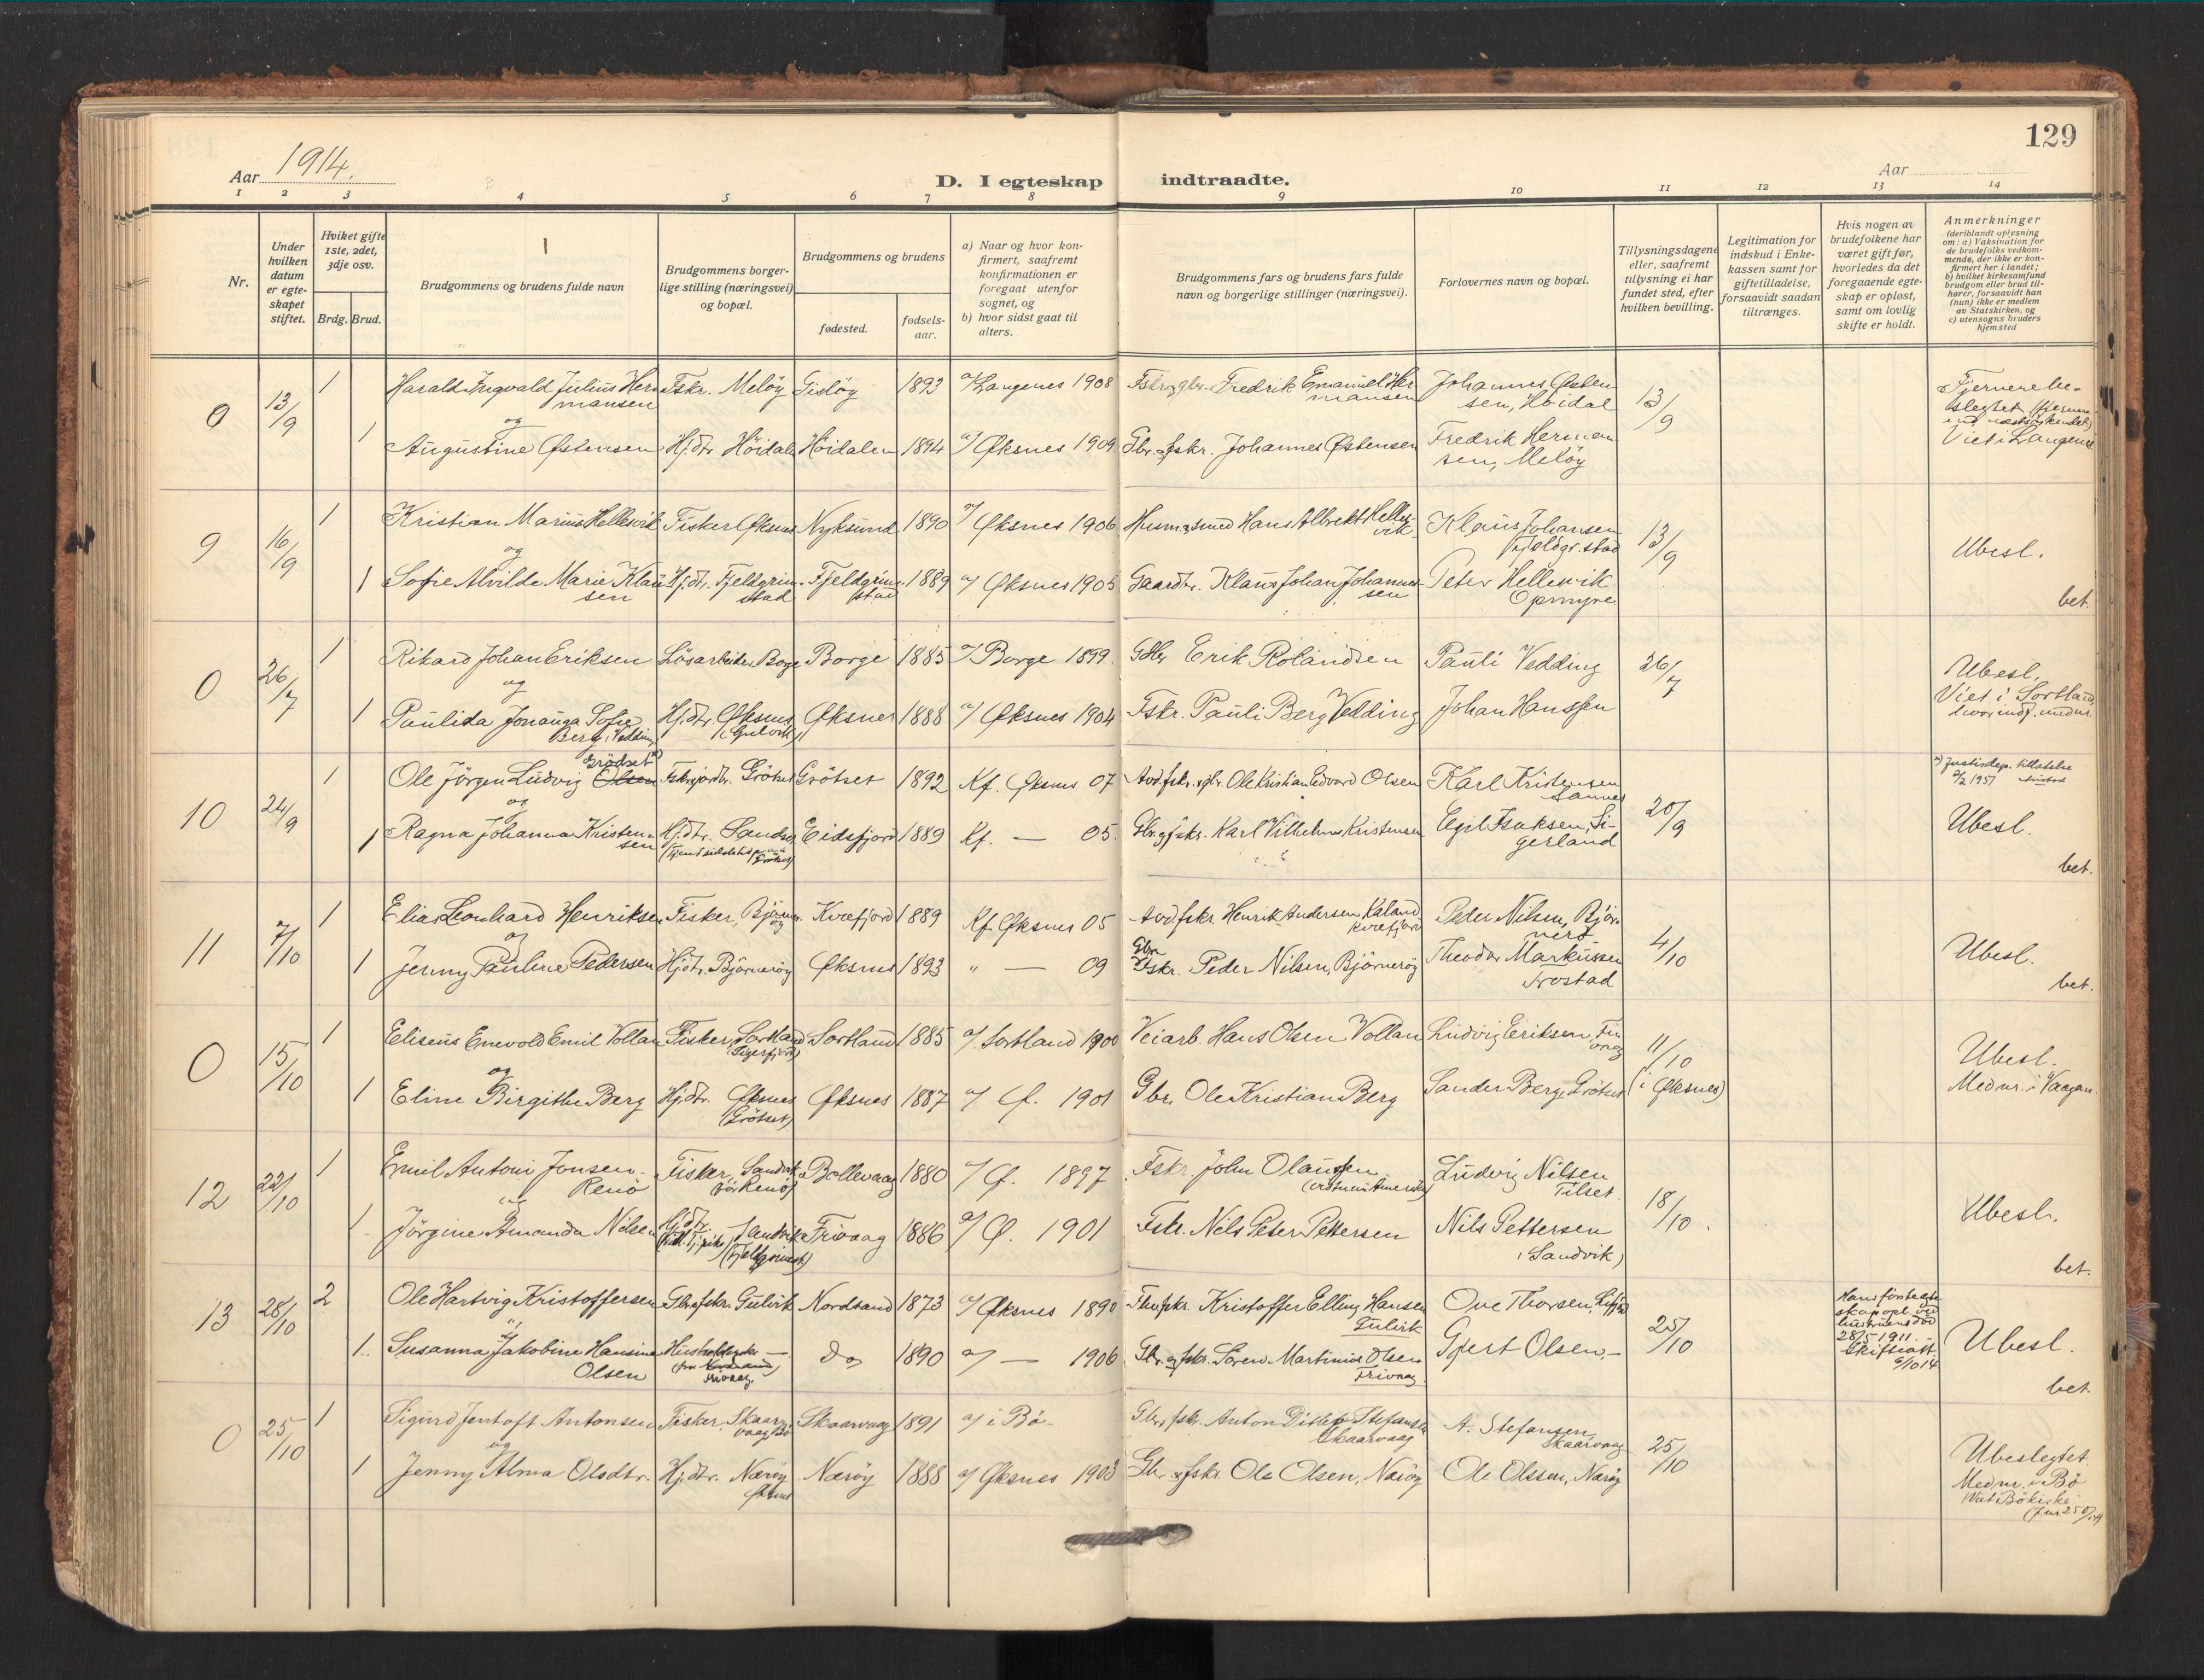 129
Aar 1914.
D. I egteskap indtraadte.
Aar
1 2 3 4 5 6 7 8 9 10 11 12 13 14
Nr.
Under hvilken datum er egteskapet stiftet.
Hviket gifte 1ste, 2det, 3dje osv.
Brdg. Brud.
Brudgommens og brudens fulde navn
Brudgommens borgerlige stilling (næringsvei) og bopæl.
Brudgommens og brudens
fødested.
fødselsaar.
a) Naar og hvor konfirmert, saafremt konfirmationen er foregaat utenfor sognet, og
b) hvor sidst gaat til alters.
Brudgommens fars og brudens fars fulde navn og borgerlige stillinger (næringsvei).
Forlovernes navn og bopæl.
Tillysningsdagene eller, saafremt tillysning ei har fundet sted, efter hvilken bevilling.
Legitimation for indskud i Enkekassen samt for giftetilladelse, forsaavidt saadan tiltrænges.
Hvis nogen av brudefolkene har været gift før, hvorledes da det foregaaende egteskap er opløst, samt om lovlig skifte er holdt.
Anmerkninger (deriblandt oplysning om: a) Vaksination for de brudefolks vedkommende, der ikke er konfirmert her i landet; b) hvilket kirkesamfund brudgom eller brud tilhører, forsaavidt han (hun) ikke er medlem av Statskirken, og c) utensogns bruders hjemsted
0 13/9 1 Harald Ingvald Julius Hermansen Fskr. Meløy Gisløy 1893 a/ Langenes 1908 Fskr. og gbr. Fredrik Emanuel Hermansen Johannes Østensen, Høidal 13/9 Fjernere beslegtet
og
1 Augustine Østensen Hj.dtr. Höidal Höidalen 1894 a/ Øksnes 1909 Gbr. og fskr. Johannes Østensen Fredrik Hermansen, Meløy Viet i Langenes
9 16/9 1 Kristian Marius Hellevik Fisker Øksnes Nyksund 1890 a/ Øksnes 1906 Husm. og smed Hans Albrekt Hellevik Klaus Johansen Fjeldgr.stad 13/9 Ubesl.
og
1 Sofie Alvilde Marie Klausen Hj.dtr. Fjeldgrimstad Fjeldgrimstad 1889 a/ Øksnes 1905 Gaardbr. Klaus Johan Johannessen Peter Hellevik Opmyre bet.
0 26/7 1 Rikard Johan Eriksen Løsarbeider Borge Borge 1885 a/ Borge 1899 Gbr. Erik Rolandsen Pauli Vedding 26/7 Ubesl.
og
1 Paulida Jonanga Sofie Berg, Vedding Hj.dtr. Øksnes (Gulvik) Øksnes 1888 a/ Øksnes 1904 Fskr. Pauli Berg Vedding Johan Hanssen Viet i Sortland, hvor indf. med nr.
10 24/9 1 Ole Jörgen Ludvig Olsen Grödset Fskr. jordbr. Grötset Grötset 1892 Kf. Øksnes 07 Avd. fskr. og gbr. Ole Kristian Edvard Olsen Karl Kristensen Sannes 20/9 Justisdep. tillatelse 2/2 1951
og
1 Ragna Johanna Kristensen Hj.dtr. Sandnes Eidsfjord 1889 Kf. — 05. Gbr. og fskr. Karl Vilhelm Kristensen Egil Isaksen, Sigerland Ubesl. bet.
11 7/10 1 Elias Leonhard Henriksen Fisker, Björnerøy Kvæfjord 1889 Kf. Øksnes 05 Avd. fskr. Henrik Andersen, Kaland Kvæfjord Peder Nilsen, Björnerø 4/10 Ubesl.
og
1 Jenny Pauline Pedersen Hjdtr. Björnerøy Øksnes 1893 " — 09 Gbr. Fskr. Peder Nilsen, Björnerøy Theodor Markussen Frostad bet.
0 15/10 1 Eliseus Enevold Emil Vollan Fisker, Sortland (Sigerfjord) Sortland 1885 a/ Sortland 1900 Veiarb. Hans Olsen Vollan Ludvig Eriksen, Finvaag 11/10 Ubesl.
og
1 Eline Birgithe Berg Hj.dtr. Øksnes (Grötset) Øksnes 1887 a/ Ø. 1901 Gbr. Ole Kristian Berg Sander Berg, Grötset (i Øksnes) Med nr. i Vaagan.
12 22/10 1 Emil Antoni Jonsen Renö Fisker, Sandvik (før Renö) Bollevaag 1880 a/ Ø. 1897 Fskr. John Olaussen (Amerika) Ludvig Nilsen Tilset. 18/10. Ubesl.
og
1 Jörgine Amanda Nilsen Hjdtr. Sandvik (Fjeldgrimst.) Frivaag 1886 a/ Ø. 1901 Fskr. Nils Peter Pettersen Nils Pettersen (Sandvik) bet.
13 28/10 2 Ole Hartvig Kristoffersen Gbr. og fskr. Gulvik Nordsand 1873 a/ Øksnes 1890 Gbr. og fskr. Kristoffer Elling Hansen Gulvik Ove Thorsen, 25/10 Hans første egteskap opl. ved hustruens død 28/5 1911. Skifteatt. 6/10 14 Ubesl.
1. Susanna Jakobine Hansine Olsen Husholderske — Frivaag. do 1890 a/ — 1906 Gbr. og fskr. Søren Martinius Olsen Frivaag Gjert Olsen, — bet.
0 25/10 1 Sigurd Jentoft Antonsen Fisker, Skaarvaag Bø Skaarvaag 1891 a/ i Bø- Gbr. fskr. Anton Ditlev Stefansen Skaarvaag A. Stefansen Skaarvaag 25/10 Ubeslegtet
og
1 Jenny Alma Olsdtr. Hj.dtr. Nærøy Øksnes Nærøy 1888 a/ Øksnes 1903 Gbr. og fskr. Ole Olsen, Nærøy Ole Olssen, Nærøy Med nr. i Bø
Viet i Bø kirke